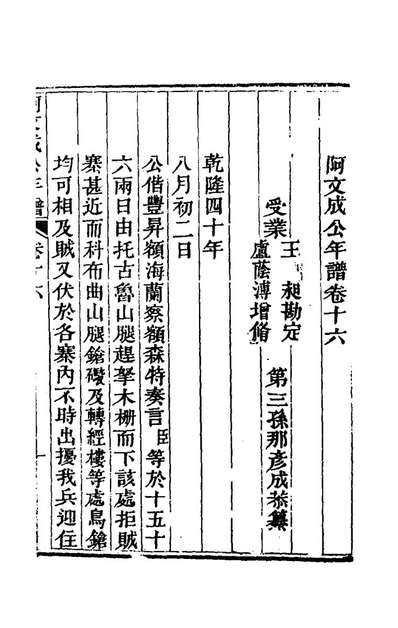 阿文成公年譜卷十六
第三孫那彥成恭纂
受業
王昶勘定
盧蔭溥增脩
乾隆四十年
八月初二日
公偕豐昇額海蘭察額森特奏言臣等於十五十
六兩日由托古魯山腿趕拏木柵而下該處拒賊
寨甚近而科布曲山腿鎗礮及轉經樓等處鳥鎗
均可相及賊又伏於各寨內不時出擾我兵迎住
阿文成公年譜
卷十六
一